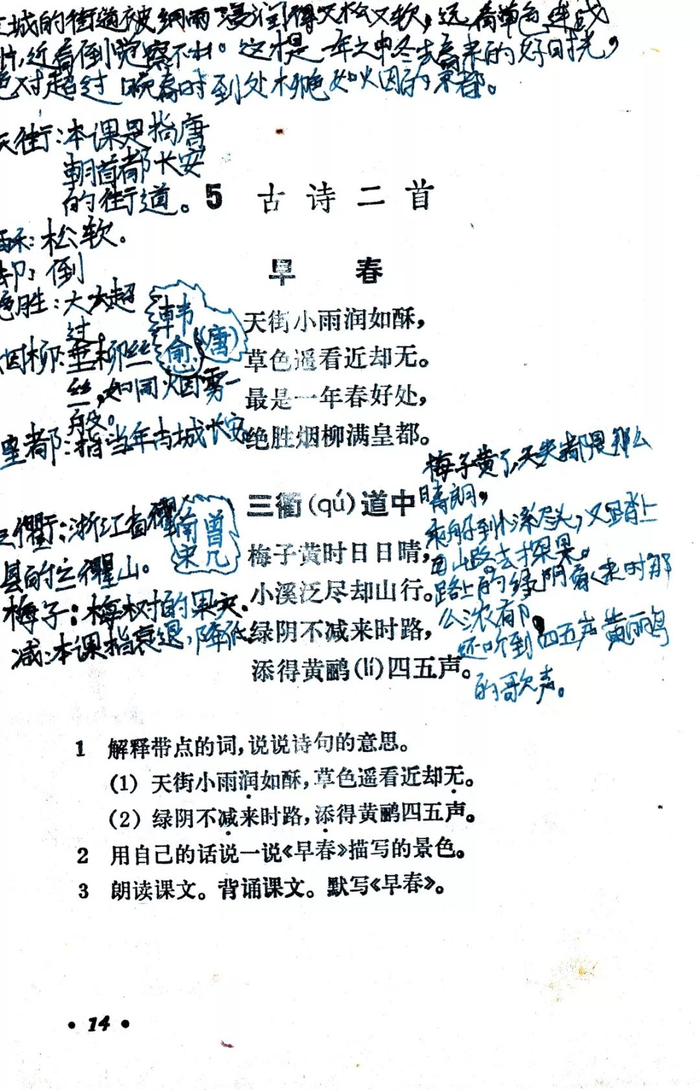 城的街道被细雨浸润得又松又软,远看草色连成
片,近看倒觉察不出。这才是一年之中冬去春来的好时光,
绝对超过晚春时到处柳絮如烟的京都。
天街:本课是指唐
朝首都长安
的街道。
酥:松软。
却:倒
绝胜:大大超
过。
烟柳:垂柳丝
丝,如同烟雾一
般。
皇都:指当年古城长安
5 古诗二首
早 春
韩愈(唐)
天街小雨润如酥,
草色遥看近却无。
最是一年春好处,
绝胜烟柳满皇都。
三衢:浙江省衢
县的三衢山。
梅子:梅树的果实。
减:本课指衰退,降低
三衢(qú)道中
南宋 曾几
梅子黄时日日晴,
小溪泛尽却山行。
绿阴不减来时路,
添得黄鹂(lí)四五声。
梅子黄了,天天都是那么
晴朗,
乘船到小溪尽头,又踏上
山路去探果。
路上的绿阴像来时那
么浓郁,
还听到四五声黄鹂鸟
的歌声。
1 解释带点的词,说说诗句的意思。
(1) 天街小雨润如酥,草色遥看近却无。
(2) 绿阴不减来时路,添得黄鹂四五声。
2 用自己的话说一说《早春》描写的景色。
3 朗读课文。背诵课文。默写《早春》。
• 14 •